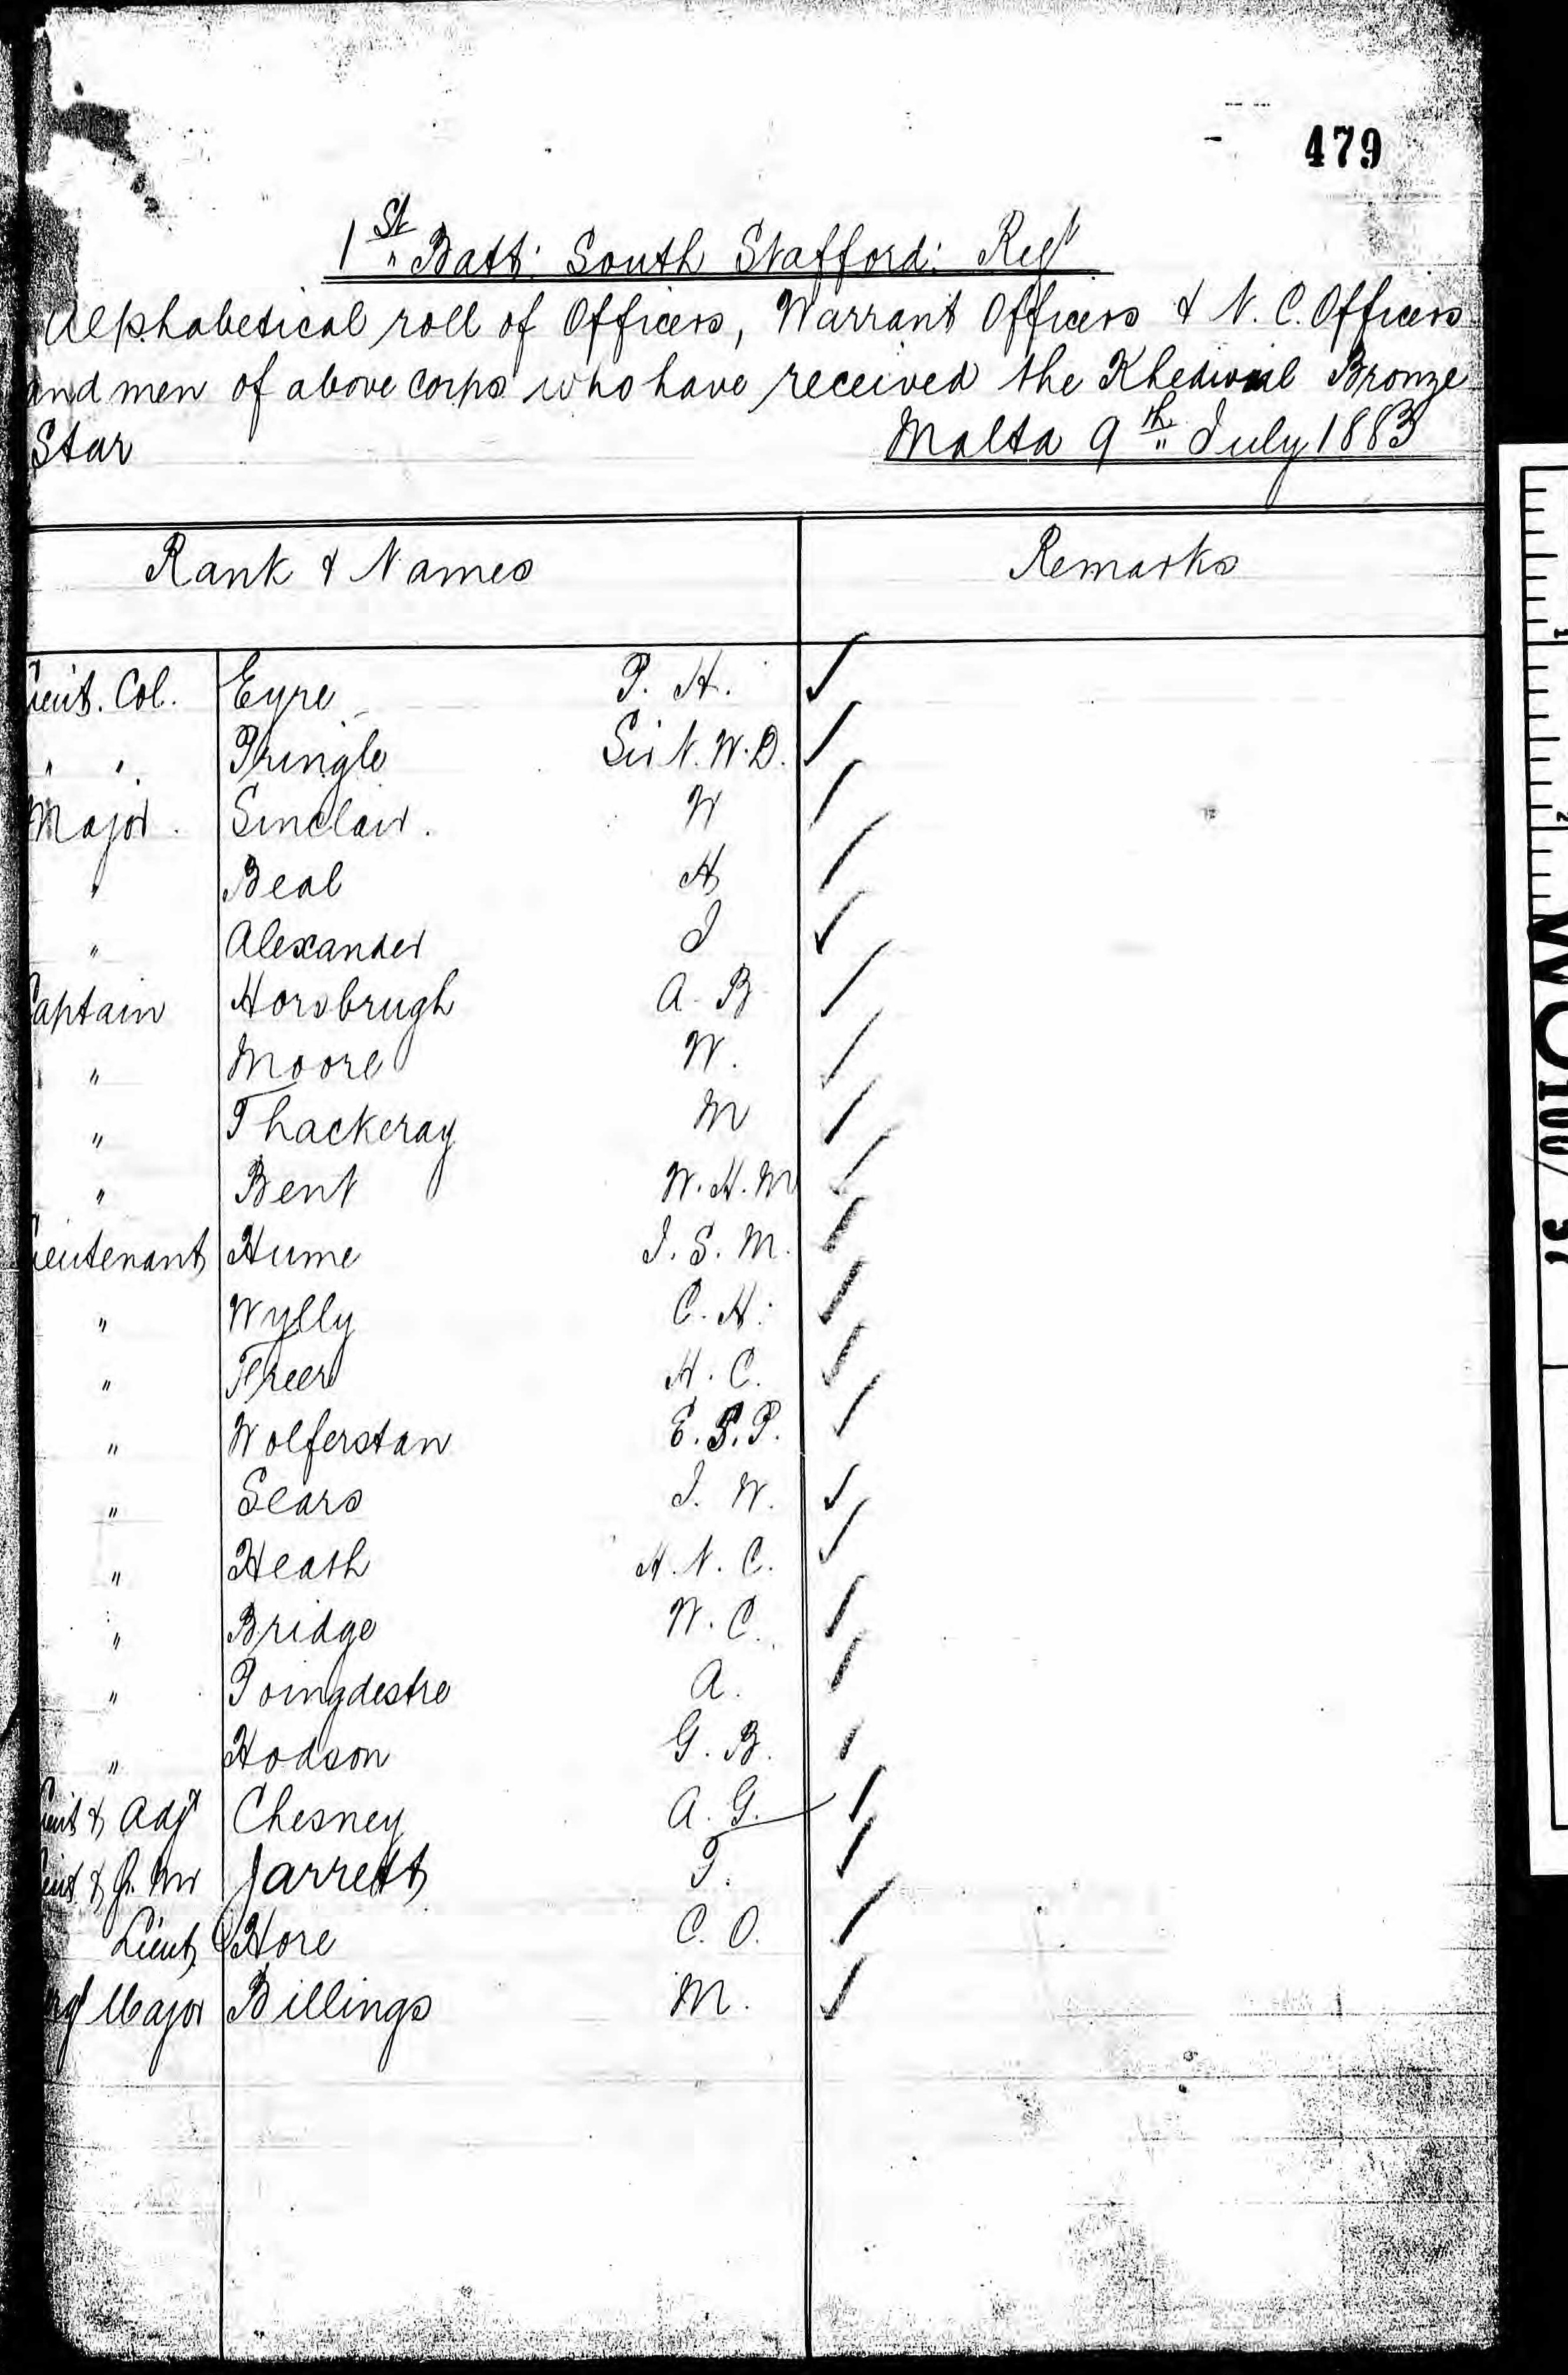 479
1st Batt: South Stafford: Regt
Alphabetical roll of Officers, Warrant Officers & N. C. Officers
and men of above Corps who have received the Khedivial Bronze
Star Malta 9th July 1883
Rank & Names Remarks
Lieut. Col. Eyre P. H. ✓
" " Pringle Sir N. W. D. ✓
Major Sinclair W ✓
" Beal H ✓
" Alexander J ✓
Captain Horsbrugh A. B ✓
" Moore W. ✓
" Thackeray M ✓
" Bent W. H. M ✓
Lieutenant Hume J. S. M. ✓
" Wylly C. H. ✓
" Freer H. C. ✓
" Wolferstan E. S. P. ✓
" Sears J. W. ✓
" Heath H. N. C. ✓
" Bridge W. C. ✓
" Poingdestre A. ✓
" Hodson G. B. ✓
Lieut & Adjt Chesney A. G. ✓
Lieut & Qr. Mr Jarrett T. ✓
Lieut Hore C. O. ✓
Major Billings M. ✓
WO100/